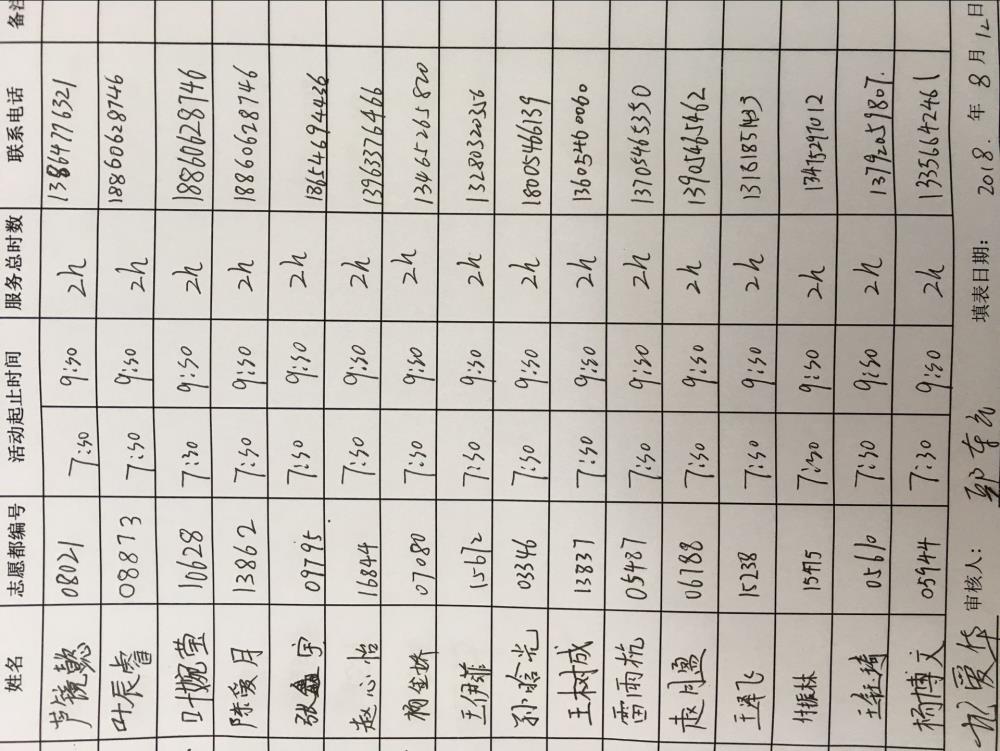 姓名 志愿都编号 活动起止时间 服务总时数 联系电话 备注
芦镜懿 08021 7:30 9:30 2h 13864776321
叶辰睿 08873 7:30 9:30 2h 18860628746
叶婉莹 10628 7:30 9:30 2h 18860628746
陈爱月 13862 7:30 9:30 2h 18860628746
张鑫宇 09795 7:30 9:30 2h 18654694436
赵心怡 16844 7:30 9:30 2h 13963376466
杨金娇 07080 7:30 9:30 2h 13465265820
王伊菲 15612 7:30 9:30 2h 13280320356
孙晗光 03346 7:30 9:30 2h 18005466139
王树成 13837 7:30 9:30 2h 13605460060
雷雨杭 05487 7:30 9:30 2h 13705465350
赵月盈 06188 7:30 9:30 2h 13905465462
15238 7:30 9:30 2h
付振林 7:30 9:30 2h 13475297012
05610 7:30 9:30 2h 13792059807.
杨博文 05944 7:30 9:30 2h 13356642461
爱华 审核人: 填表日期: 2018. 年 8 月 12 日